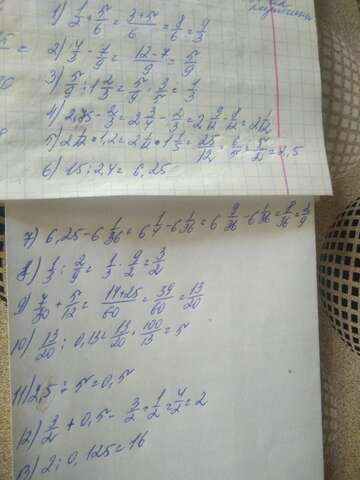 1) 1/2 + 5/6 = (3+5)/6 = 8/6 = 4/3
2) 4/3 - 7/9 = (12-7)/9 = 5/9
3) 5/9 : 1 2/3 = 5/9 · 3/5 = 1/3
4) 2,75 - 2/3 = 2 3/4 - 2/3 = 2 (9-8)/12 = 2 1/12
5) 2 1/12 · 1,2 = 2 1/12 · 1 1/5 = 25/12 · 6/5 = 5/2 = 2,5
6) 15 : 2,4 = 6,25
7) 6,25 - 6 1/36 = 6 1/4 - 6 1/36 = 6 9/36 - 6 1/36 = 8/36 = 2/9
8) 1/3 : 2/9 = 1/3 · 9/2 = 3/2
9) 7/30 + 5/12 = (14+25)/60 = 39/60 = 13/20
10) 13/20 : 0,13 = 13/20 · 100/13 = 5
11) 2,5 : 5 = 0,5
13) 2 : 0,125 = 16